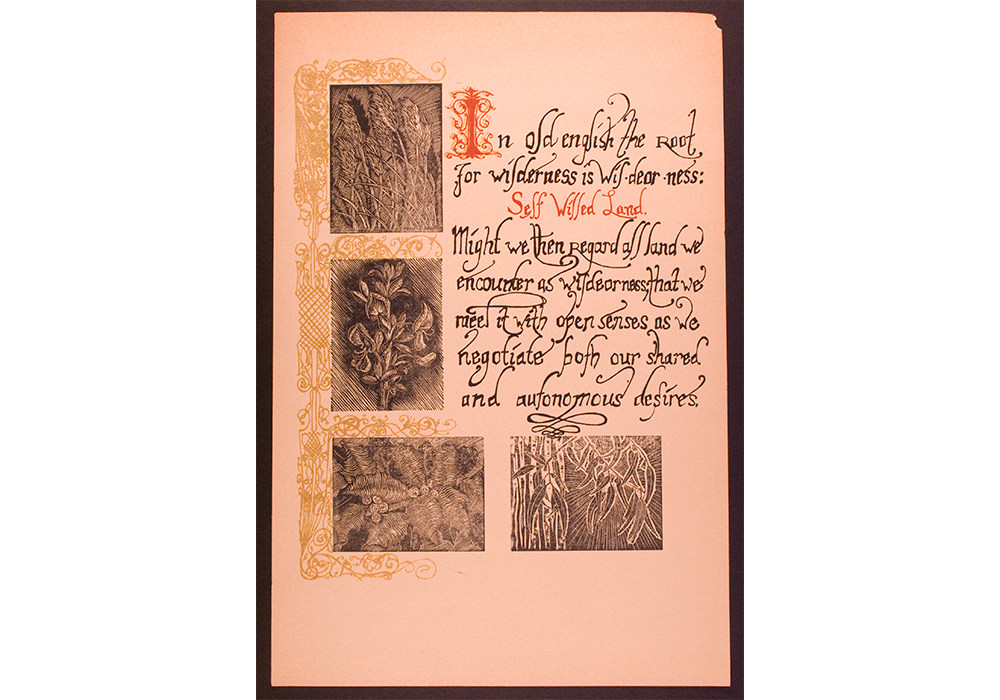 In old english the Root
for wilderness is Wil·deor·ness:
Self Willed Land.
Might we then Regard all land we
encounter as wildeorness; that we
meet it with open senses as we
negotiate both our shared
and autonomous desires.